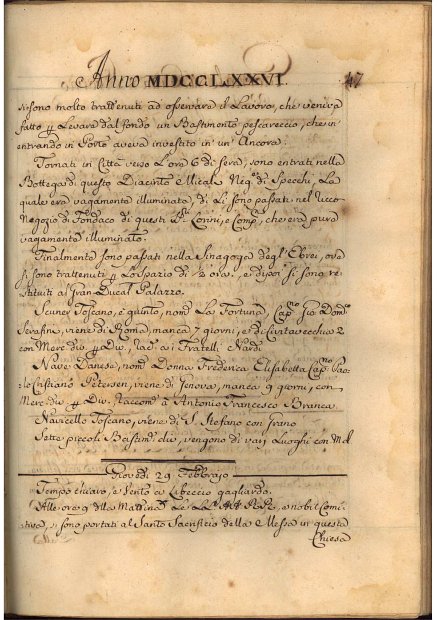 Anno MDCCLXXVI. 47
si sono molto trattenuti ad osservare il Lavoro, che veniva
fatto p Levare dal fondo un Bastimento pescareccio, che in
entrando in Porto aveva investito in un' Ancora.
Tornati in Città verso l'ora 6 di sera, sono entrati nella
Bottega di questo Diacinto Micali Neg.te di Specchi, La
quale era vagamente illuminata, di Li sono passati nel ricco
Negozio di Fondaco di questi Sig.ri Corini, e Comp.i, che era pure
vagamente illuminato.
Finalmente sono passati nella Sinagoga degl'Ebrei, ove
si sono trattenuti p Lo spazio di 2 ora, e dipoi si sono re=
stituiti al Gran-Ducal Palazzo.
Scuner Toscano, e quinto, nom.to La Fortuna, Cap.no Gio Dom.co
Serafini, viene di Roma, manca 7 giorni, e di Civitavecchia 2
con Merc.zie p Div.i, Rac.to a i Fratelli Nardi
Nave Danese, nom.ta Donna Frederica Elisabetta Cap.no Pao=
lo Cristiano Petersen, viene di Genova, manca 9 giorni, con
Merc.zie p Div.i, Raccom.to à Antonio Francesco Branca
Navicello Toscano, viene di S. Stefano con grano
Sette piccoli Bastim.ti div.i vengono di varj Luoghi con M.e
Giovedì 29 Febbrajo
Tempo chiaro, e Vento di Libeccio gagliardo.
Alle ore 9 della Mattina Le LL. AA. RR. e nobil Comi=
tiva, si sono portati al Santo Sacrificio della Messa in questa
Chiesa